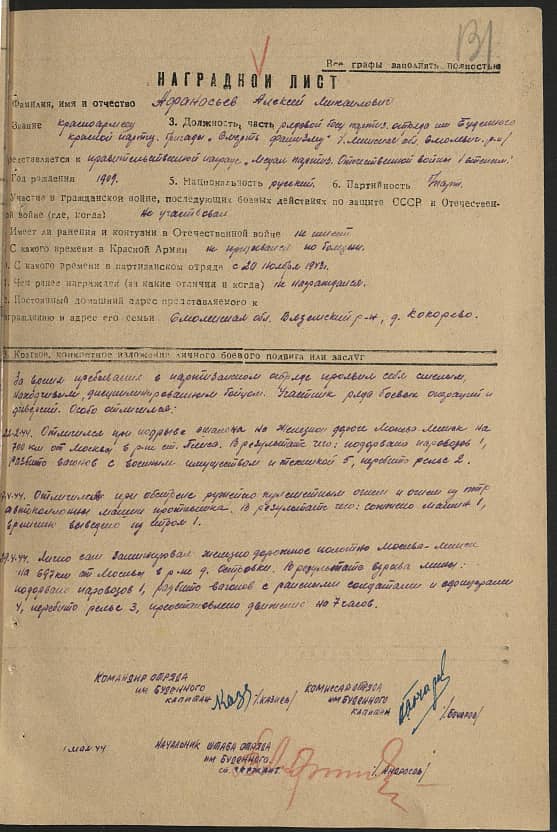 131
Все графы заполнять полностью
НАГРАДНОЙ ЛИСТ
Фамилия, имя и отчество Афанасьев Алексей Михайлович
Звание красноармеец 3. Должность, часть рядовой боец партиз. отряда им Буденного
партиз. бригады "Смерть фашизму" Минская обл. Смолевич. р-н
редставляется к правительственной награде "Медаль партиз. Отечественной войны I степени"
Год рождения 1909. 5. Национальность русский. 6. Партийность
Участие в гражданской войне, последующих боевых действиях по защите СССР и Отечествен-
ной войне (где, когда) не участвовал
Имеет ли ранения и контузии в Отечественной войне не имеет
С какого времени в Красной Армии не призывался по болезни.
С какого времени в партизанском отряде с 20 ноября 1942г.
Чем ранее награжден (за какие отличия и когда) не награждался.
Постоянный домашний адрес представляемого к
награждению и адрес его семьи Смоленская обл. Вяземский р-н, д. Кокорево.
Краткое, конкретное изложение личного боевого подвига или заслуг
За время пребывания в партизанском отряде проявил себя смелым,
находчивым, дисциплинированным бойцом. Участник ряда боевых операций и
диверсий. Особо отличился:
2.44. Отличился при подрыве эшелона на железной дороге Москва Минск на
700 км от Москвы в р-не ст. В результате чего: подорвано паровозов 1,
разбито вагонов с военным имуществом и техникой 5, перебито рельс 2.
4.44. Отличился при обстреле ружейно пулеметным огнем и огнем из птр
автоколонны машин противника. В результате чего: сожжено машин 1,
временно выведено из строя 1.
4.44. Лично сам заминировал железно дорожное полотно Москва-Минск
на 697 км от Москвы в р-не д. Островки. В результате взрыва мины:
подорвано паровозов 1, разбито вагонов с солдатами и офицерами
4, перебито рельс 3, приостановлено движение на 7 часов.
КОМАНДИР ОТРЯДА КОМИССАР ОТРЯДА
ИМ БУДЕННОГО ИМ БУДЕННОГО
КАПИТАН КАПИТАН
1 мая 44 НАЧАЛЬНИК ШТАБА ОТРЯДА
ИМ БУДЕННОГО
СТ. СЕРЖАНТ /Андросов/